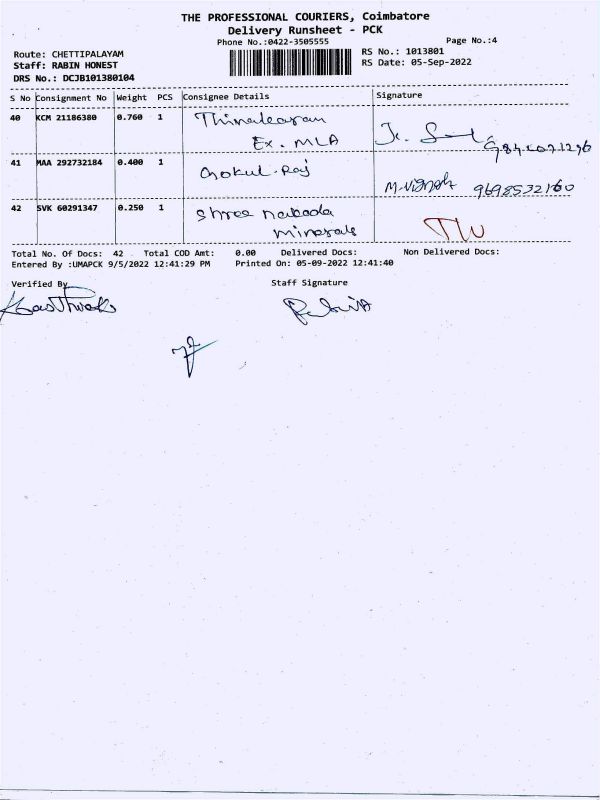 THE PROFESSIONAL COURIERS, Coimbatore
Delivery Runsheet - PCK
Phone No.:0422-3505555
Page No.:4
Route: CHETTIPALAYAM
RS No.: 1013801
Staff: RABIN HONEST
RS Date: 05-Sep-2022
DRS No.: DCJB101380104
S No Consignment No Weight PCS Consignee Details Signature
40 KCM 21186380 0.760 1
Ex. MLA
41 MAA 292732184 0.400 1 Gokul. Raj
M.Vignesh 9698532160
42 SVK 60291347 0.250 1 Shree nakoda
minerals
Total No. Of Docs: 42 Total COD Amt: 0.00 Delivered Docs: Non Delivered Docs:
Entered By :UMAPCK 9/5/2022 12:41:29 PM Printed On: 05-09-2022 12:41:40
Verified By Staff Signature